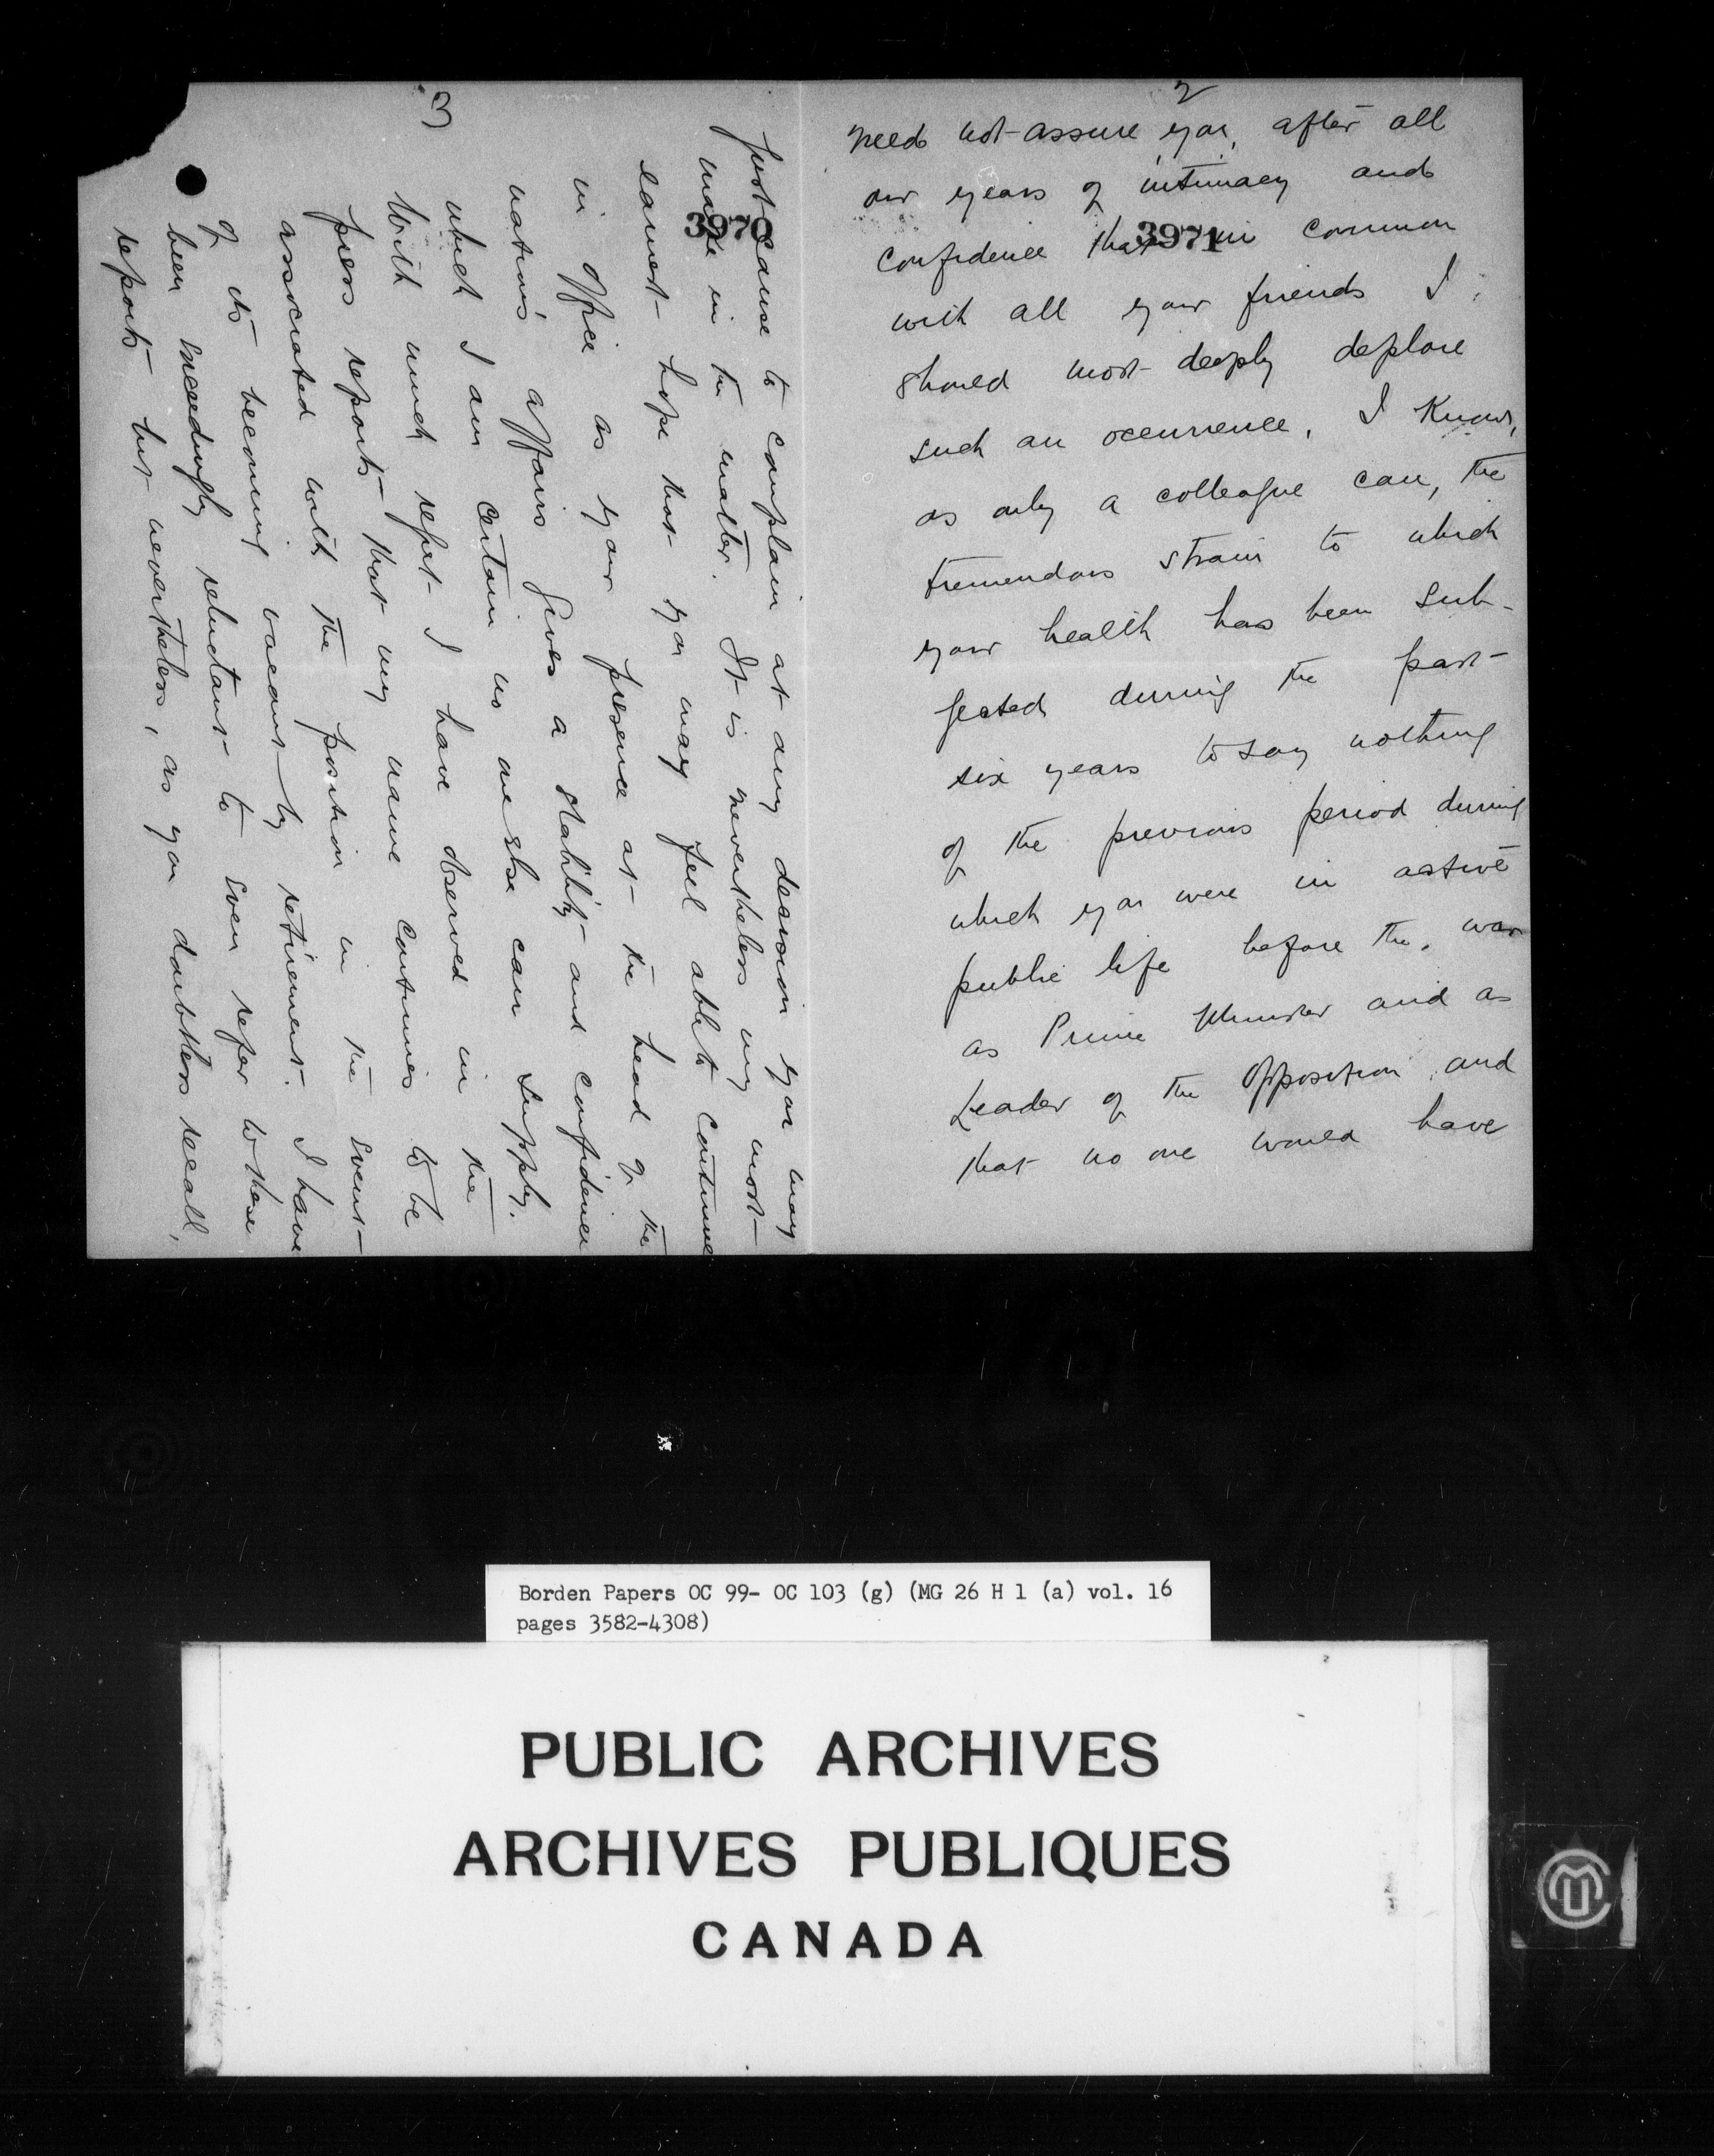 2
need not assure you, after all
our years of intimacy and
confidence that in common
with all your friends I
should most deeply deplore
such an occurrence. I know,
as only a colleague can, the
tremendous strain to which
your health has been sub-
jected during the past
six years to say nothing
of the previous period during
which you were in active
public life before the war
as Prime Minister and as
Leader of the Opposition and
that no one would have
3971
3
just cause to complain at any decision you may
make in the matter. It is nevertheless my most
earnest hope that you may feel able to continue
in office as your presence at the head of the
nation's affairs gives a stability and confidence
which I am certain no one else can supply.
With much regret I have observed in the
press reports that my name continues to be
associated with the position in the event
of its becoming vacant by retirement. I have
been exceedingly reluctant to even refer to these
reports but nevertheless, as you doubtless recall,
3970
Borden Papers OC 99- OC 103 (g) (MG 26 H 1 (a) vol. 16
pages 3582-4308)
PUBLIC ARCHIVES
ARCHIVES PUBLIQUES
CANADA